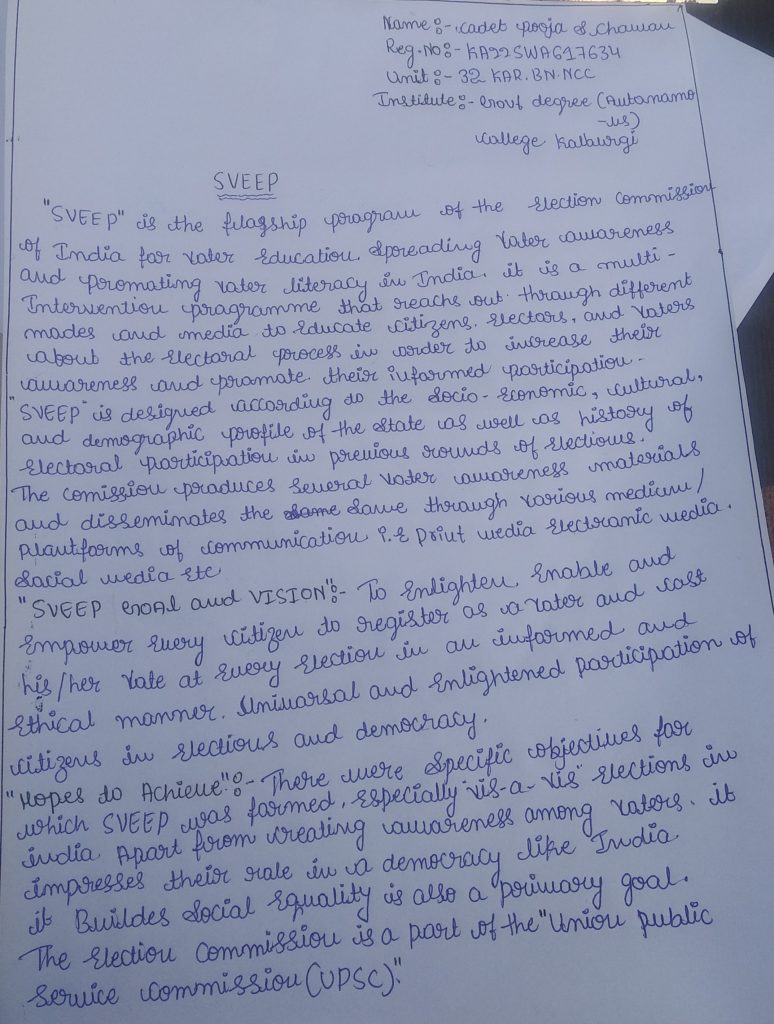 Name :- Cadet Pooja S. Chawan
Reg. No :- KA22SWA617634
Unit :- 32 KAR. BN. NCC
Institute :- Govt degree (Autanamo
-us)
College Kalburgi
SVEEP
"SVEEP" is the flagship program of the Election Commission
of India for Voter Education, Spreading Voter awareness
and promating vater literacy in India. it is a multi-
Intervention pragramme that reaches out through different
mades and media to Educate citizens, Electors, and Vaters
about the Electoral process in order to increase their
awareness and pramate their informed participation.
"SVEEP" is designed according to the Socio-Economic, cultural,
and demographic profile of the State as well as history of
Electaral participation in previous rounds of elections.
The comission produces Several Vater awareness materials
and disseminates the same through various medium/
Plautforms of communication i.e Print media Electranic media.
Social media Etc
"SVEEP GOAl and VISION":- To Enlighten, Enable and
Empower Every citizen to register as a vater and cast
his/her Vate at Every Election in an informed and
Ethical manner. Univarsal and Enlightened participation of
citizens in Elections and democracy.
"Hopes to Achieve":- There were Specific objectives for
which SVEEP was farmed, Especially "vis-a-vis" Elections in
india. Apart from creating awareness among vaters. it
impresses their rale in a democracy like India.
it Buildes Social Equality is also a primary goal.
The Election Commission is a part of the "Union public
Service Commission (UPSC)."